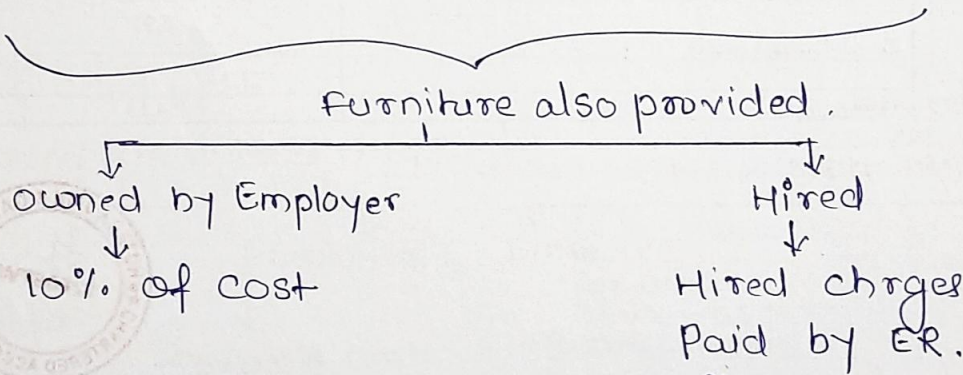 Furniture also provided.
Owned by Employer
Hired
10% of cost
Hired chrges
Paid by ER.